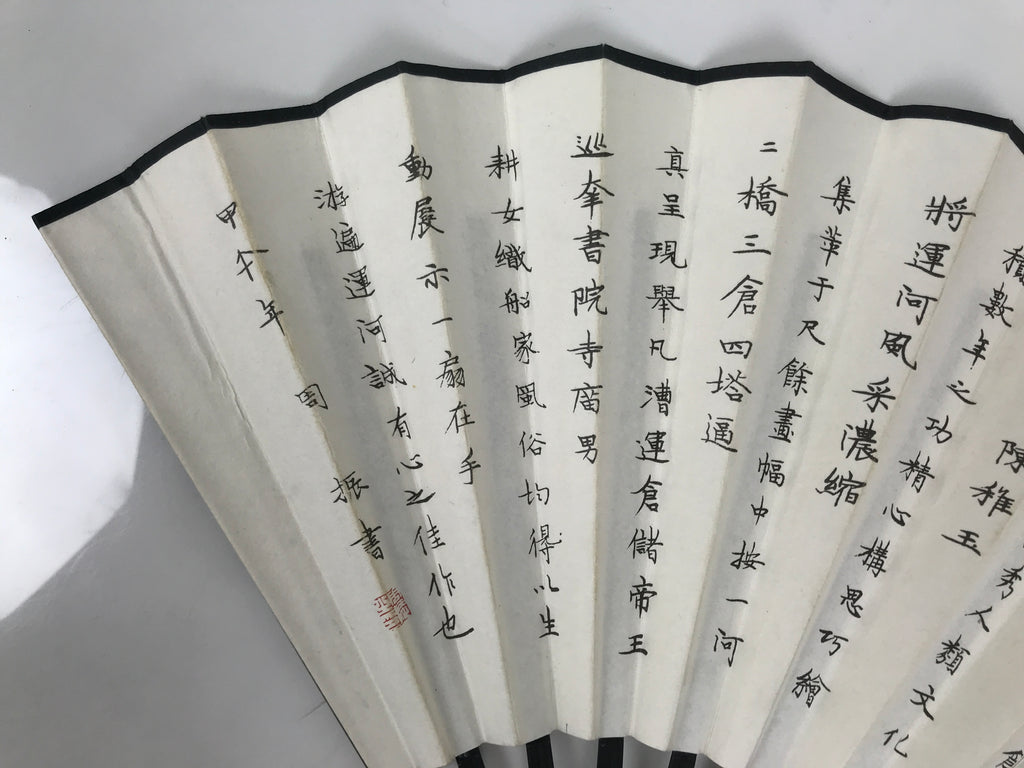 陳稚玉
秀人類文化
積數年之功精心構思巧繪
將運河風采濃縮
集萃于尺餘畫幅中按一河
二橋三倉四塔逼
真呈現舉凡漕運倉儲帝王
巡奎書院寺廟男
耕女織船家風俗均得以生
動展示一扇在手
游遍運河誠有心之佳作也
甲午年 周振書